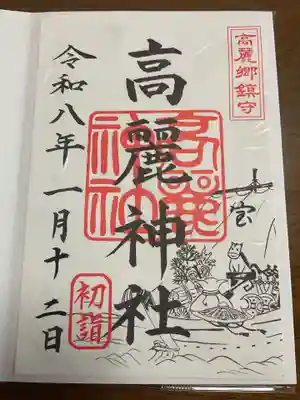 高麗郷鎮守
高麗神社
高麗神社
令和八年一月十二日
初詣
宝